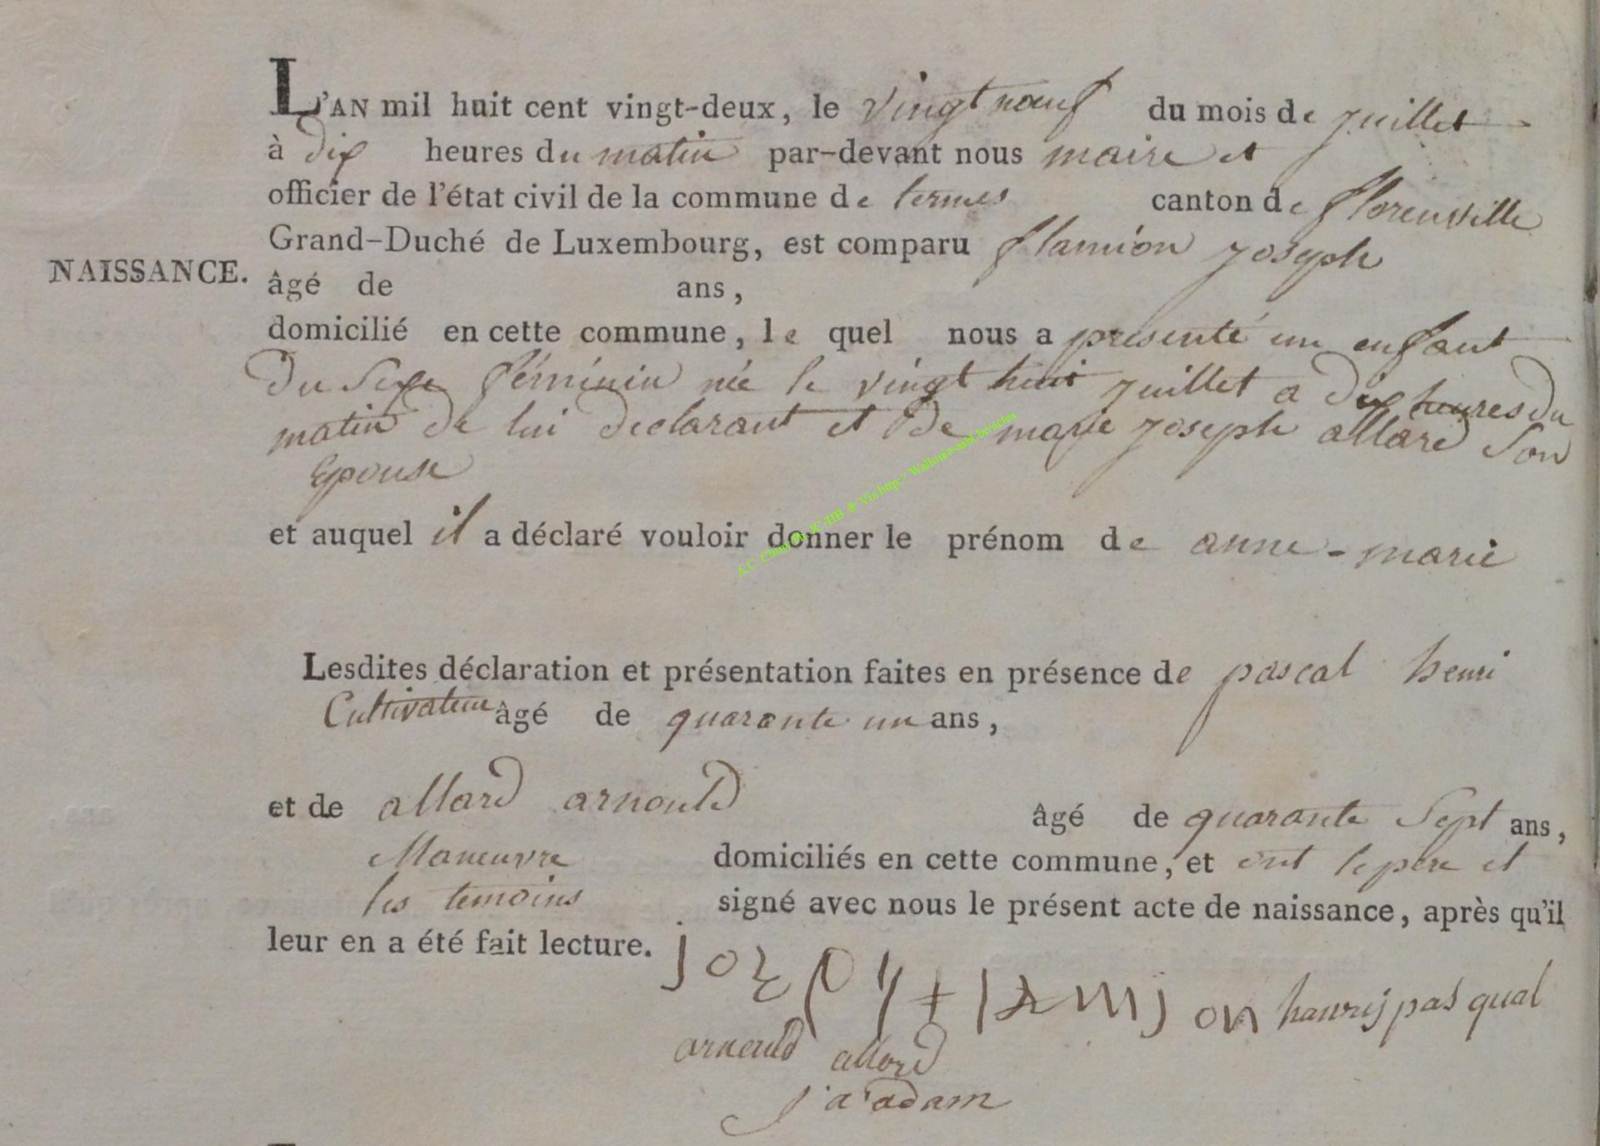 L'AN mil huit cent vingt-deux, le vingt nœuf du mois de juillet
à dix heures du matin par-devant nous maire et
officier de l'état civil de la commune de termes canton de florenville
Grand-Duché de Luxembourg, est comparu flamion joseph
NAISSANCE.
âgé de ans,
domicilié en cette commune, le quel nous a présenté un enfant
du sexe féminin née le vingt huit juillet a dix heures du
matin de lui declarant et de marie joseph allard son
Epouse
et auquel il a déclaré vouloir donner le prénom de anne-marie
Lesdites déclaration et présentation faites en présence de pascal henri
Cultivateur âgé de quarante un ans,
et de allard arnould âgé de quarante sept ans,
Maneuvre domiciliés en cette commune, et ont le pere et
les temoins signé avec nous le présent acte de naissance, après qu'il
leur en a été fait lecture.
henrij pasqual
arnould allard
j a adam